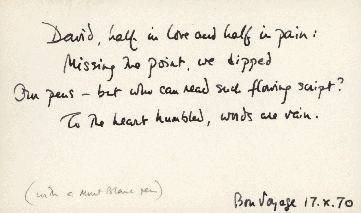 David, half in love and half in pain:
Missing the point, we dipped
Our pens – but who can read such flowing script?
To the heart humbled, words are vain.
(with a Mont Blanc pen)
Bon Voyage 17.x.70